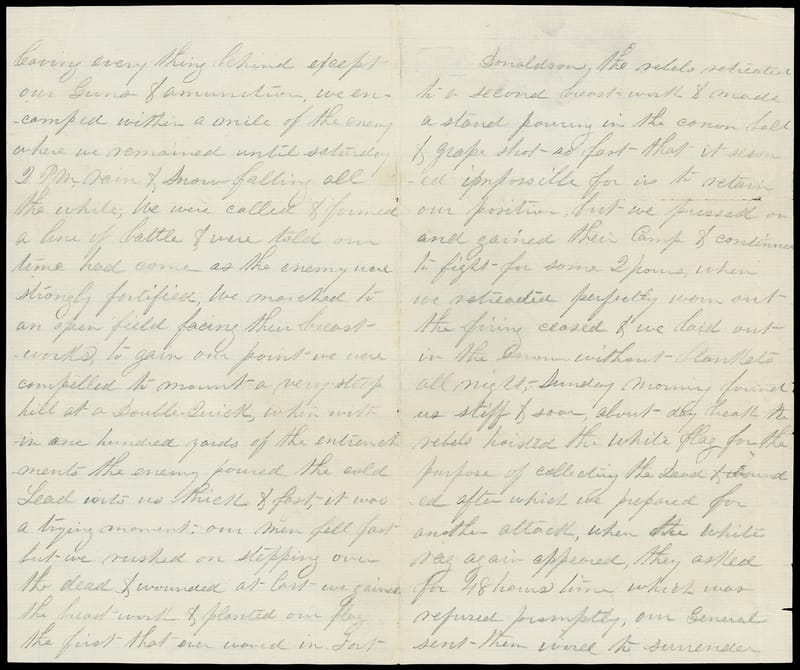 leaving every thing behind except
our Guns & amunition, we en-
-camped within a mile of the enemy
where we remained until saturday
2 P.M. rain & Snow falling all
the while, We were called & formed
a line of battle & were told our
time had come as the enemy were
strongly fortified, We marched to
an open field facing their breast-
-works, to gain our point we were
compelled to mount a very steep
hill at a Double-Quick, when with-
-in one hundred yards of the entrench
-ments the enemy poured the cold
Lead into us thick & fast, it was
a trying moment: our men fell fast
but we rushed on stepping over
the dead & wounded at last we gained
the breast work & planted our flag
the first that ever waved in Fort
Donaldson, the rebels retreated
to a second breast-work & made
a stand pouring in the canon ball
& grape shot as fast that it seem
-ed impossible for us to retain
our position, but we pressed on
and gained their Camp & continued
to fight for some 2 hours, when
we retreated perfectly worn out
the firing ceased & we laid out
in the Snow without Blankets
all night,- Sunday morning found
us stiff & soar, about day break the
rebels hoisted the White flag for the
purpose of collecting the Dead & wound
-ed after which we prepared for
another attack, when the White
rag again appeared, they asked
for 48 hours time, which was
refused promptly, our General
sent them word to surrender